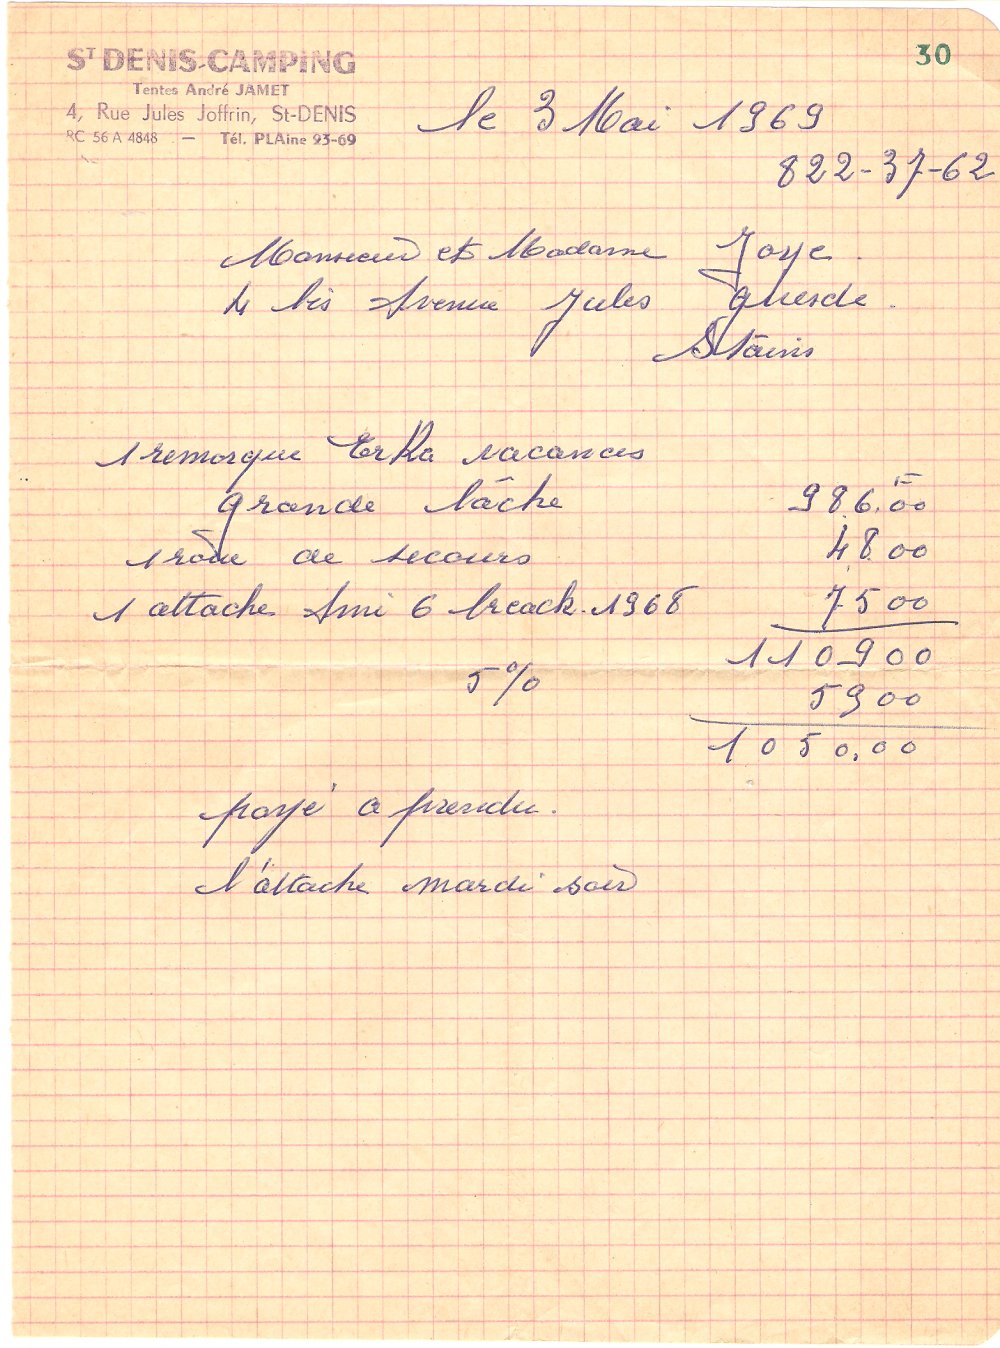 ST DENIS-CAMPING
Tentes André JAMET
4, Rue Jules Joffrin, St-DENIS
RC 56 A 4848 — Tél. PLAine 23-69
30
le 3 Mai 1969
822-37-62
Monsieur et Madame Joye.
4 bis Avenue Jules Guesde.
Stains
1 remorque ErKa vacances
grande bâche 986.00 F
1 roue de secours 48.00
1 attache Ami 6 breack. 1968 7500
110900
5% 5900
1050.00
payé a prendu.
l'attache mardi soir